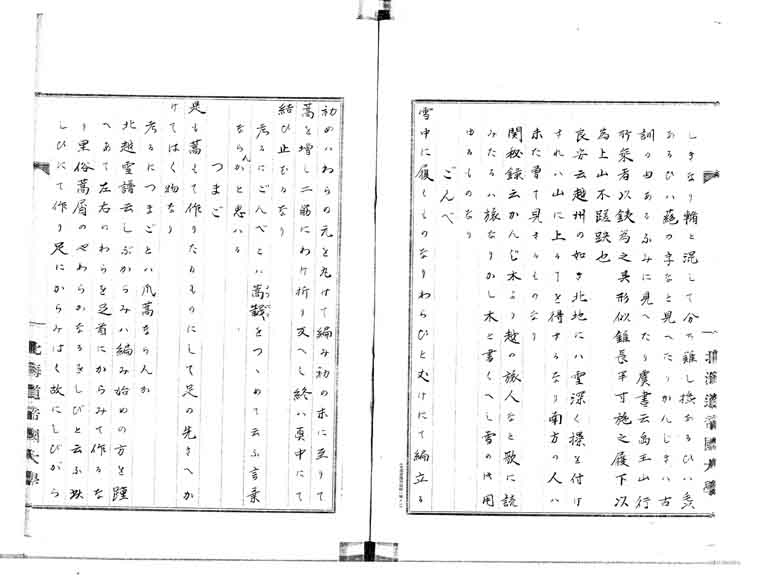 しきなり輪と混して分ち難し橇あるひハ
あるひハ 字なと見へたりかんしきハ古
訓の由あるふみに見へたり虞書云禹王山行
者以鉄為之其形似錐長半寸施之履下以
為上山不蹉跌也
良安云越州の如き北地にハ雪深く橇を付け
されハ山に上るを得せるなり南方の人ハ
未た曽て見さるものなり
関秘録云かんじ木より越の旅人なと歌に読
みたるハ旅なりかし木と書くへし雪の時用
ゆるものなり
ごんべ
雪中に履くものなりわらひとたけにて編立る
初めハわらの元を丸けて編み初の末に至りて
藁を増し二筋にわけ折り又へし終ハ真中にて
結ひ止むるなり
考るにごんべとハ藁 をつゝめて云ふ言葉
ならんかと思ハる
つまご
是も藁もて作りたるものにして足の先きへか
けてはく物なり
考るにつまごとハ爪藁ならんか
北越雪譜云しぶからみハ編み始めの方を踵
へあて左右のわらを足首にからみて作るな
り里俗藁屑のやわらかなるをしびと云ふ故
しびにて作り足にからみはく故にしびがら
北海道帝国大学
北海道帝国大学